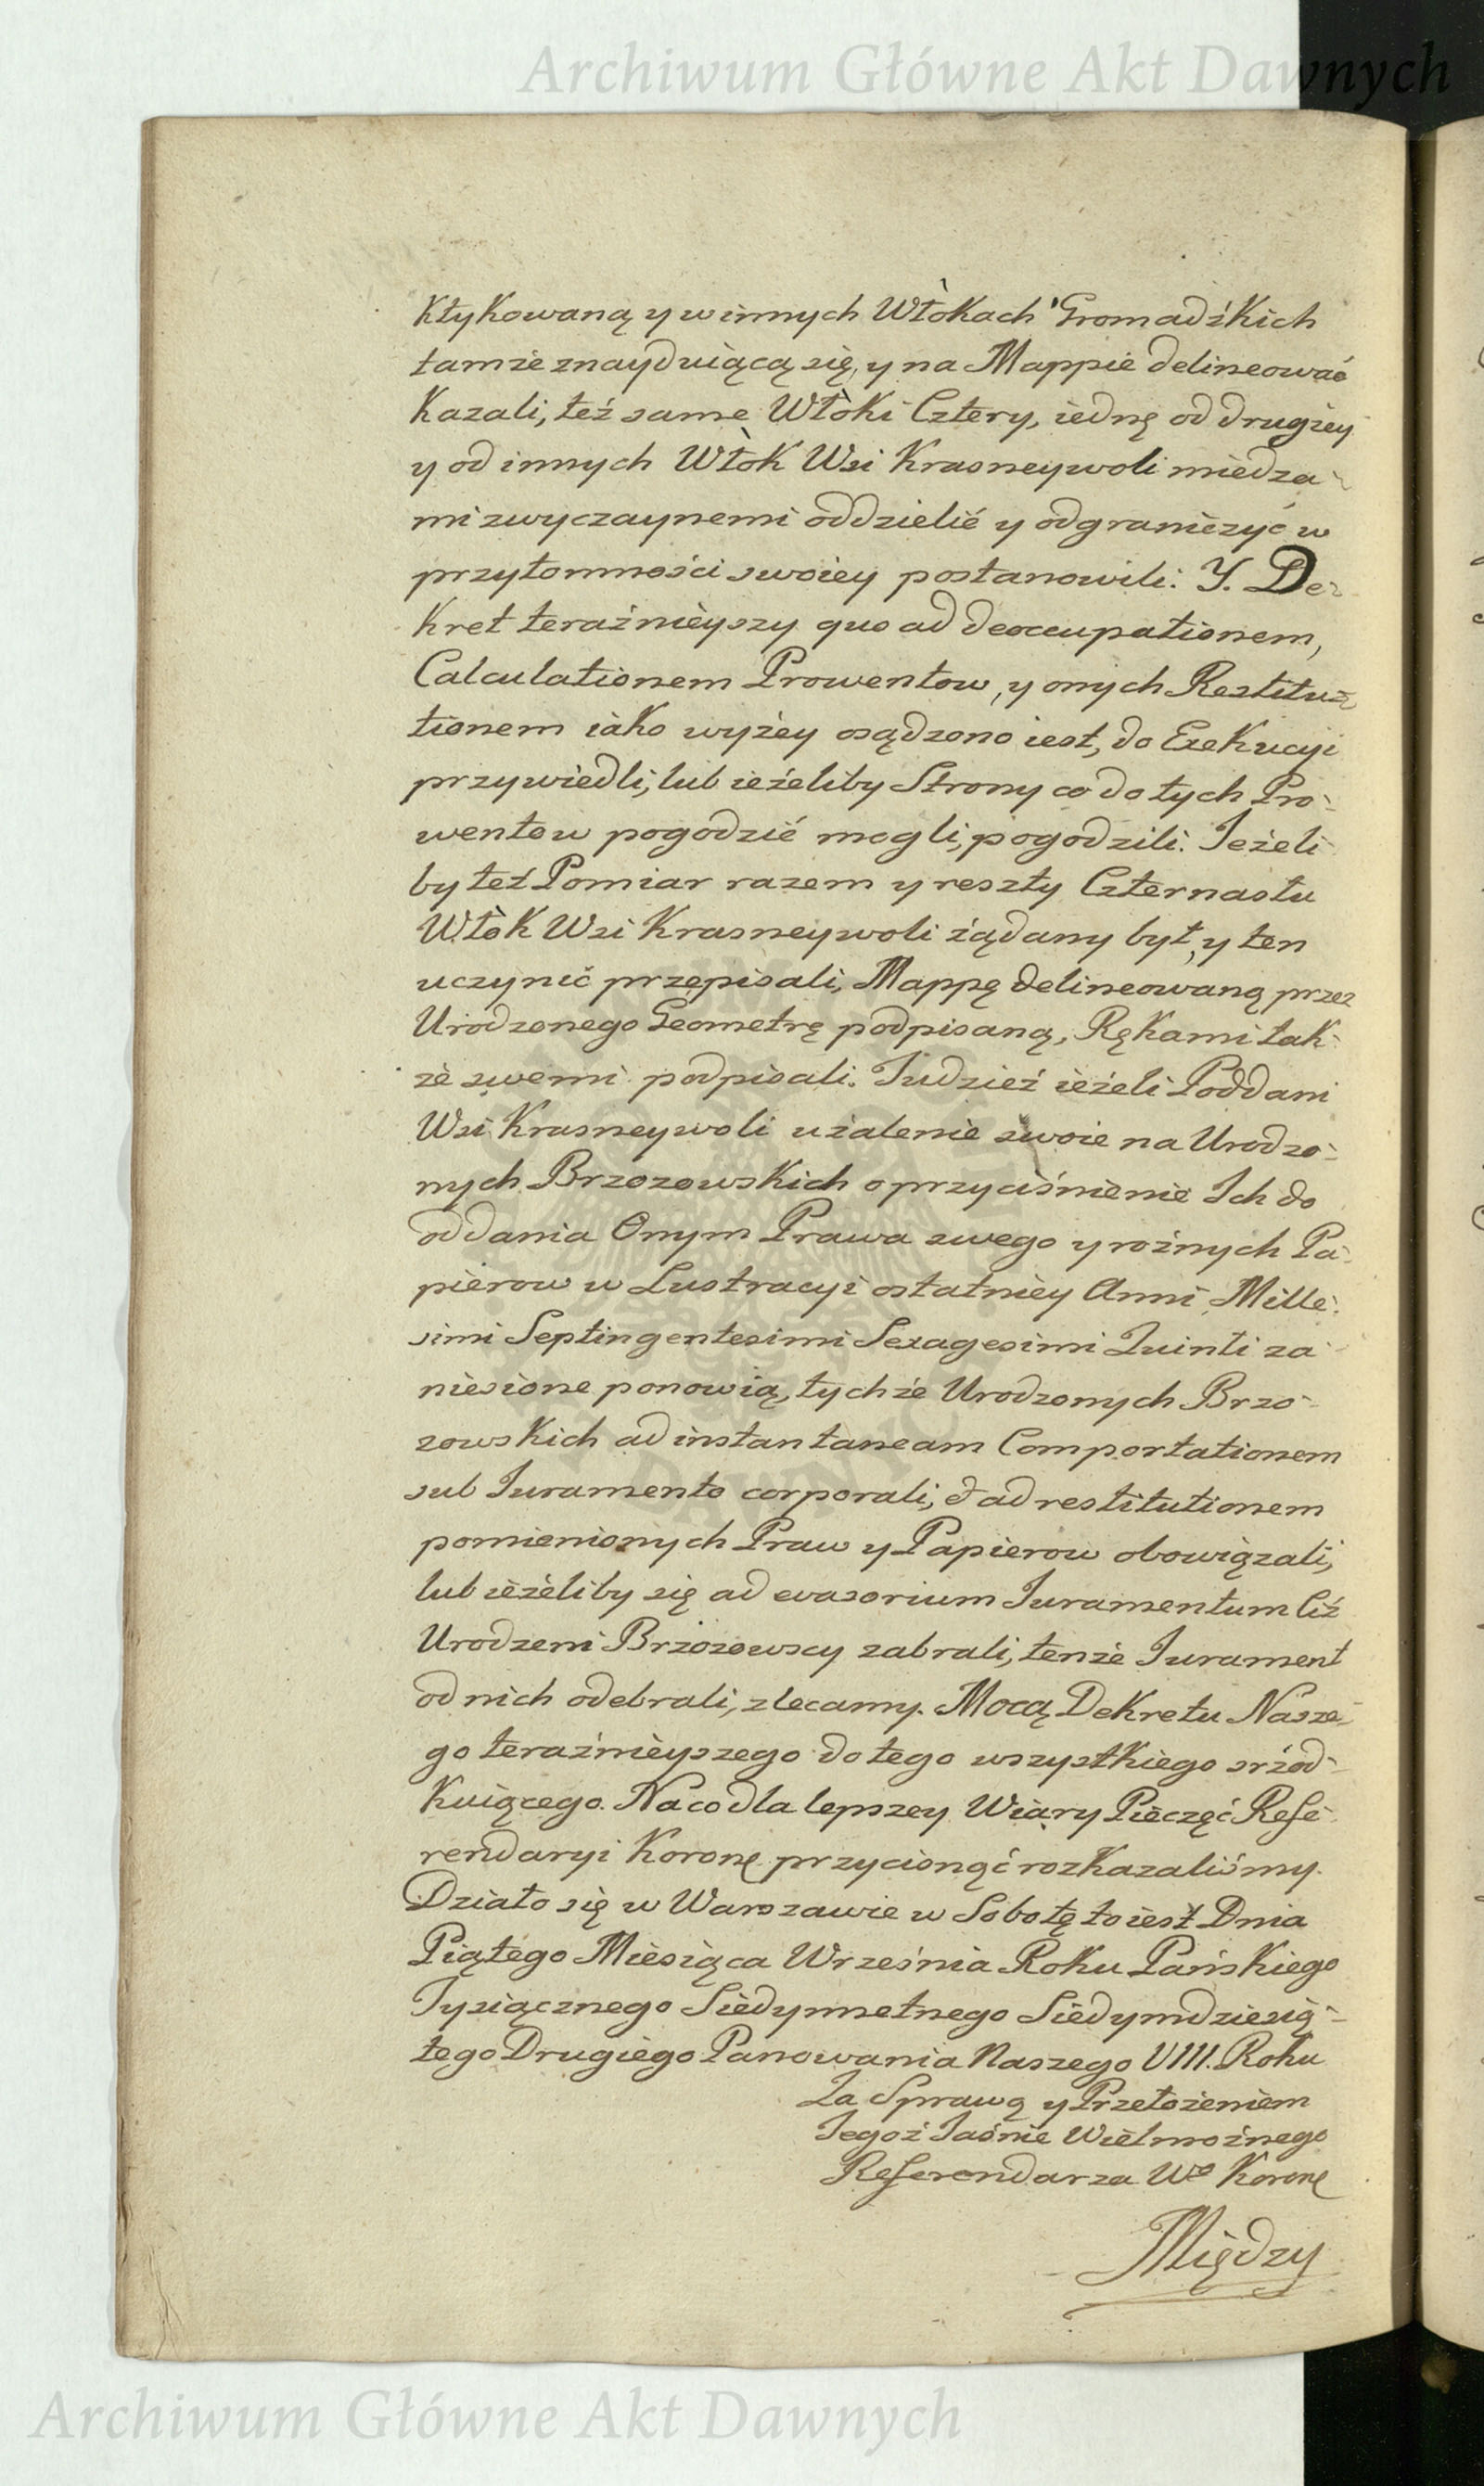 Archiwum Główne Akt Dawnych
ktykowaną y w innych Włokach Gromadźkich
tamże znayduiącą się, y na Mappie delineować
Kazali, też same Włoki Cztery, iednę od drugiey
y od innych Włok Wsi Krasneywoli miedza-
mi zwyczaynemi oddzielić y odgraniczyć w
przytomności swoiey postanowili. Y. De-
kret teraźnieyszy quo ad deoccupationem,
Calculationem Prowentow, y onych Restitu-
tionem iako wyżey osądzono iest, do Exekucyi
przywiedli, lub ieżeliby Strony co do tych Pro-
wentow pogodzić mogli, pogodzili. Jeżeli
by też Pomiar razem y reszty Czternastu
Włok Wsi Krasneywoli żądany był, y ten
uczynić przepisali, Mappę delineowaną przez
Urodzonego Geometrę podpisaną, Rękami tak-
że swemi podpisali. Tudzież ieżeli Poddani
Wsi Krasneywoli użalenie swoie na Urodzo-
nych Brzozowskich o przyciśnienie Ich do
oddania Onym Prawa swego y rożnych Pa-
pierow w Lustracyi ostatniey Anni Mille-
simi Septingentesimi Sexagesimi Quinti za-
niesione ponowią, tychże Urodzonych Brzo-
zowskich ad instantaneam Comportationem
sub Juramento corporali, & ad restitutionem
pomienionych Praw y Papierow obowiązali,
lub ieżeliby się ad evasorium Juramentum Ciż
Urodzeni Brzozowscy zabrali, tenże Jurament
od nich odebrali, zlecamy. Mocą Dekretu Nasze-
go teraźnieyszego do tego wszystkiego srźod-
kuiącego. Na co dla lepszey Wiary Pieczęć Refe-
rendaryi Koronę przycionąć rozkazaliśmy.
Działo się w Warszawie w Sobotę to iest Dnia
Piątego Miesiąca Września Roku Pańskiego
Tysiącznego Siedymsetnego Siedymdziesią-
tego Drugiego Panowania Naszego VIII. Roku
Za Sprawą y Przełożeniem
Jegoż Jaśnie Wielmożnego
Referendarza Wo Koronę
Między
Archiwum Główne Akt Dawnych